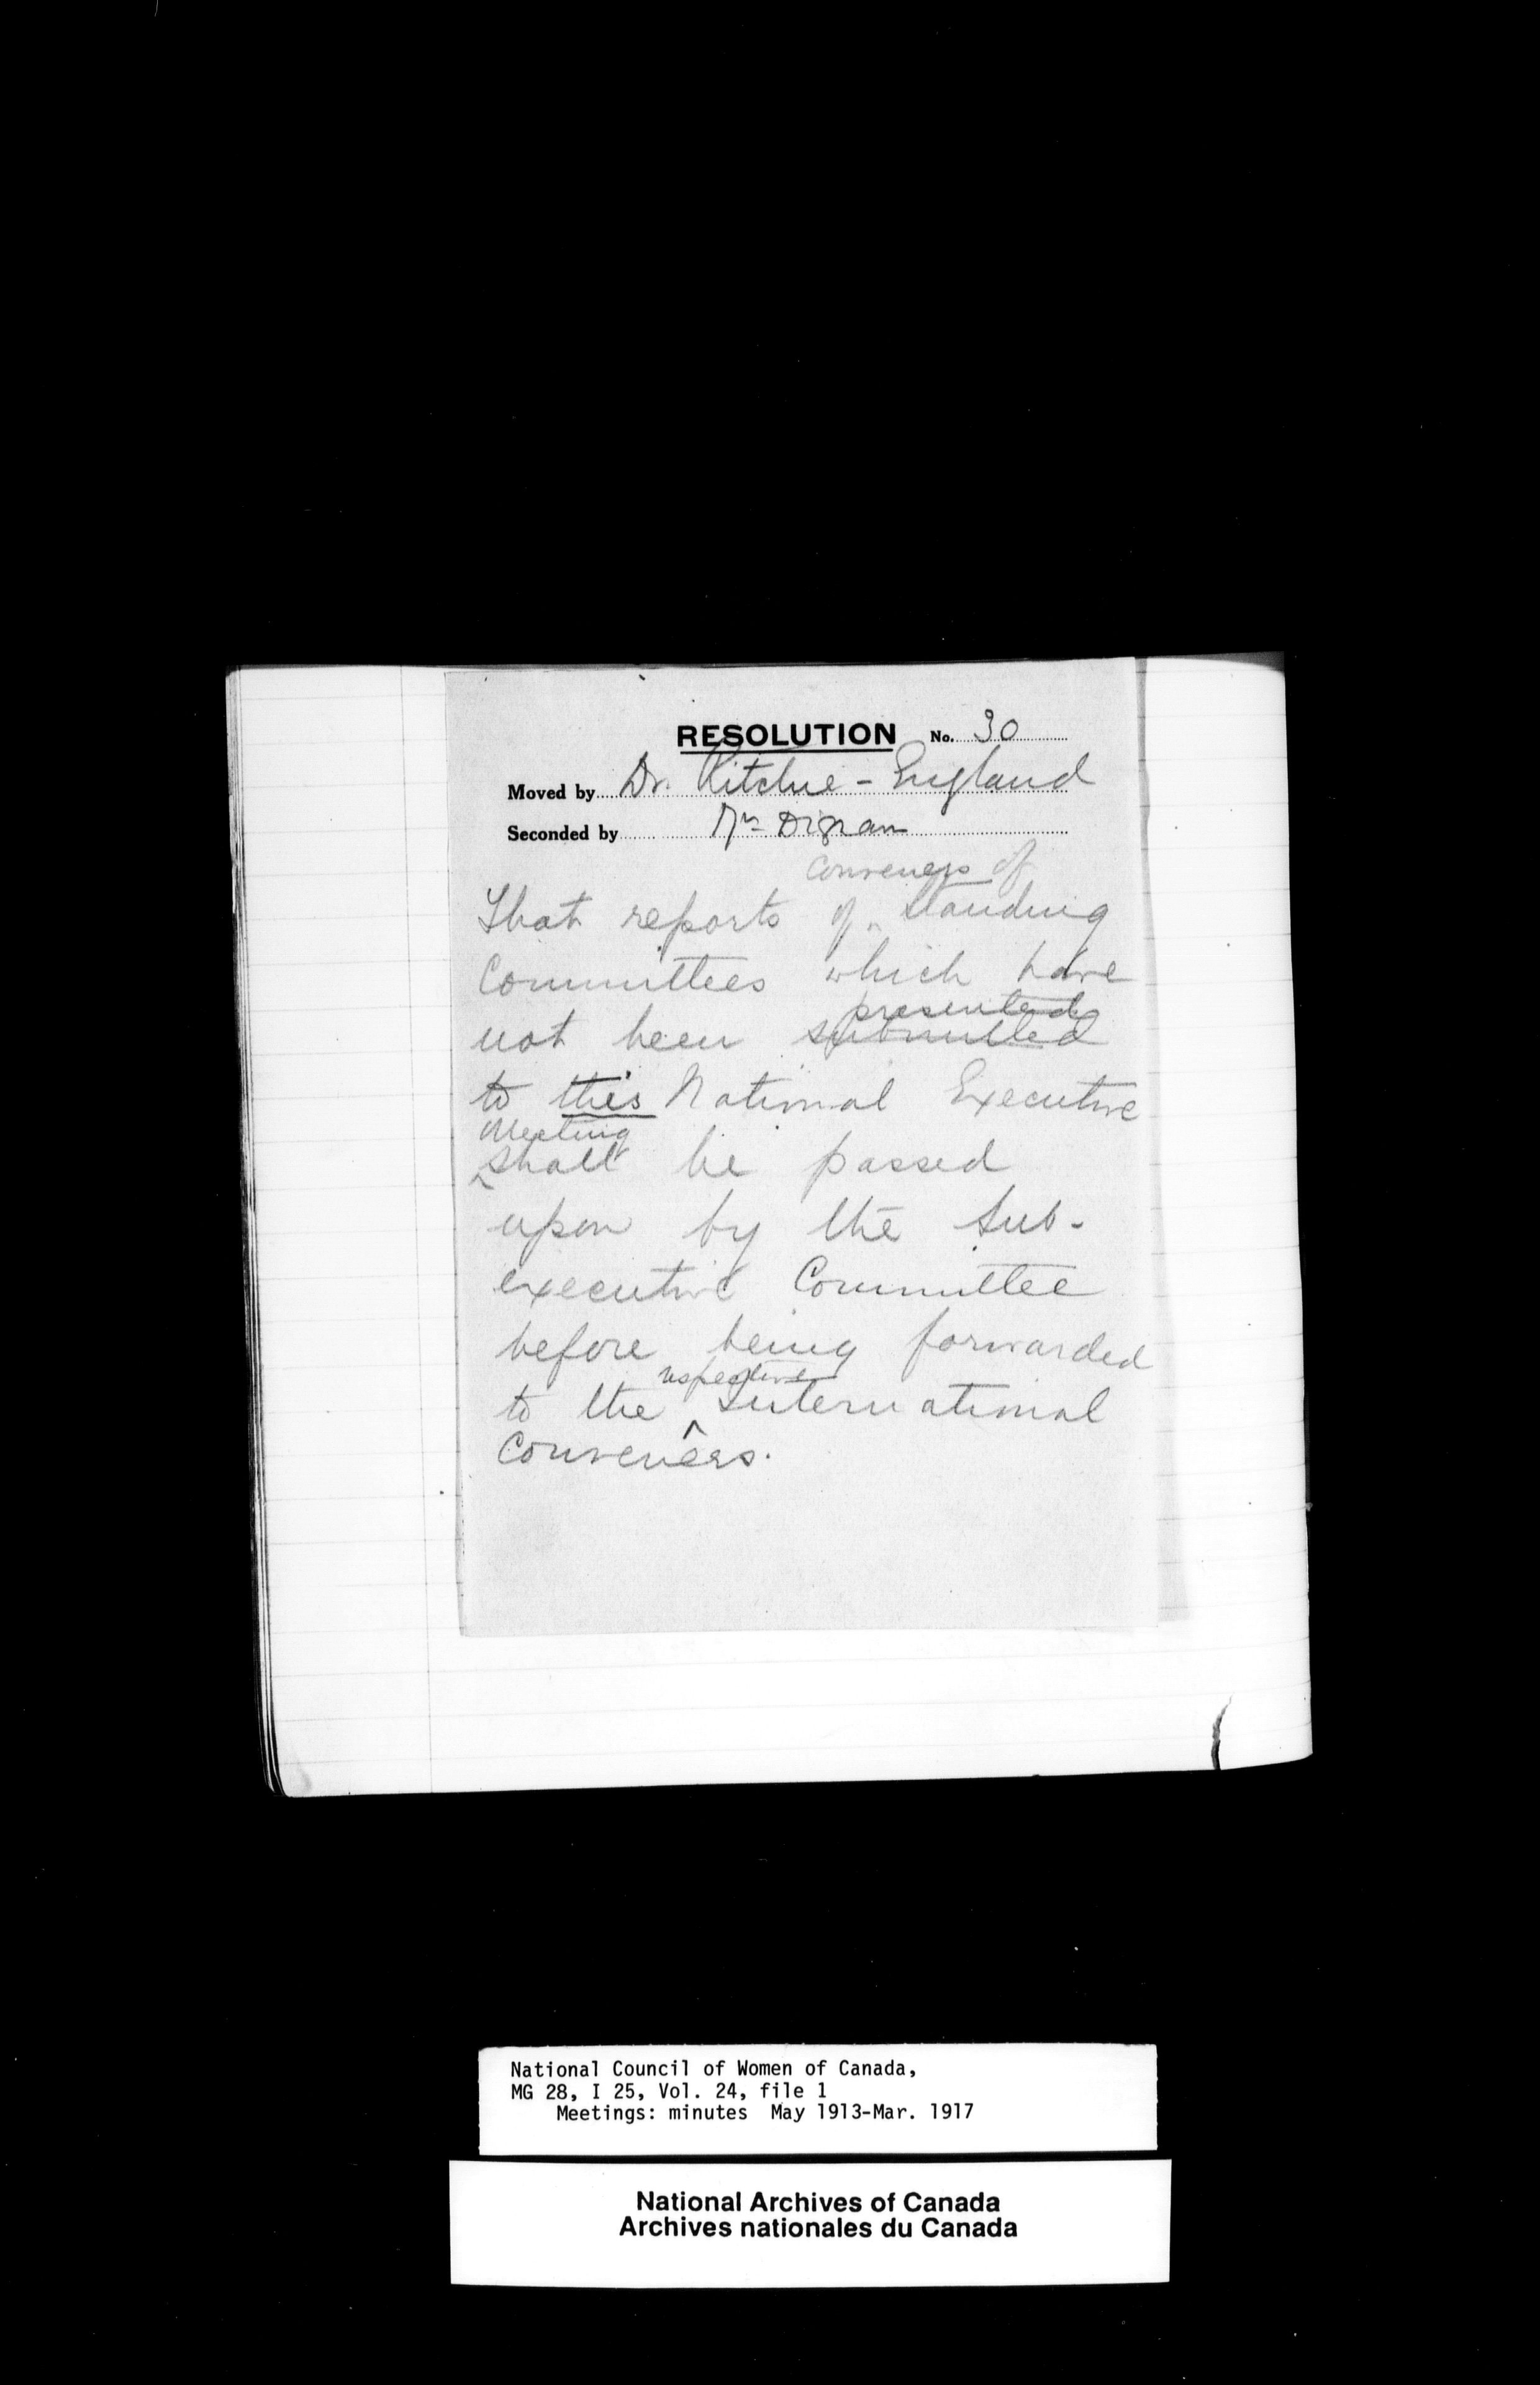 RESOLUTION No. 30
Moved by Dr. Ritchie-England
Seconded by Mrs Dignam
Conveners of
That reports of ‸ standing
Committees which have
presented
not been submitted
to this National Executive
Meeting
‸ shall be passed
upon by the Sub-
executive Committee
before being forwarded
respective
to the ‸ International
Conveners.
National Council of Women of Canada,
MG 28, I 25, Vol. 24, file 1
Meetings: minutes May 1913-Mar. 1917
National Archives of Canada
Archives nationales du Canada